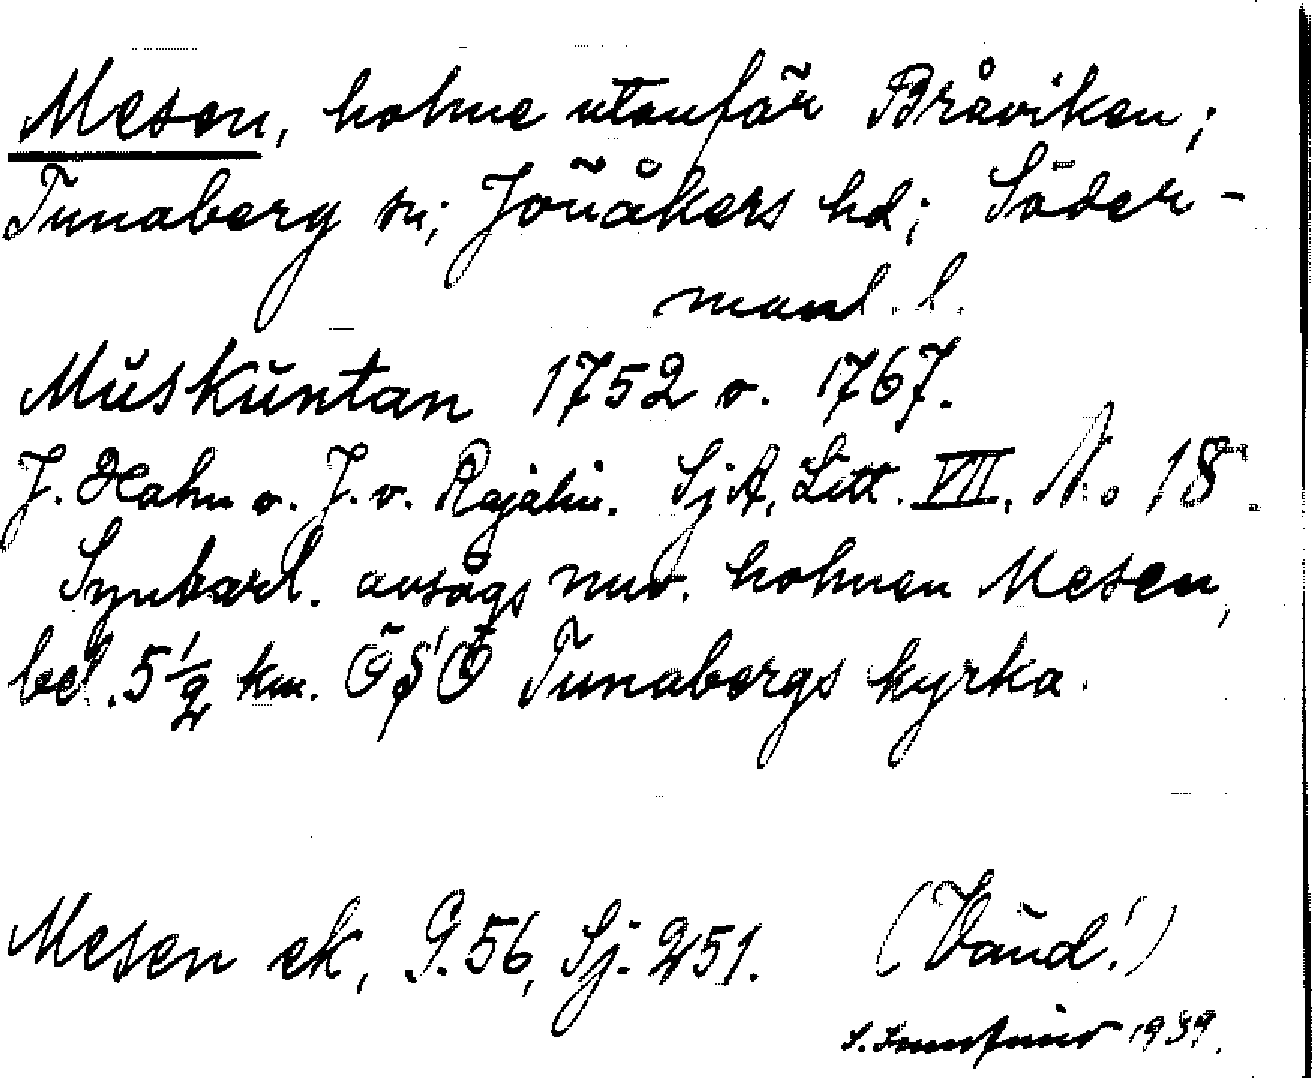 Mesen, holme utanför Bråviken;
Tunaberg sn; Jönåkers hd; Söder-
manl. l.
Muskuntan 1752 o. 1767.
J. Hahn o. J. v. Rajalin. SjA, Litt. VII. N:o 18.
Synbarl. avsågs nuv. holmen Mesen,
bel. 5 1/2 km. ÖSÖ Tunabergs kyrka.
Mesen ek, G. 56, Sj. 251. (Vänd!)
S. 1939.